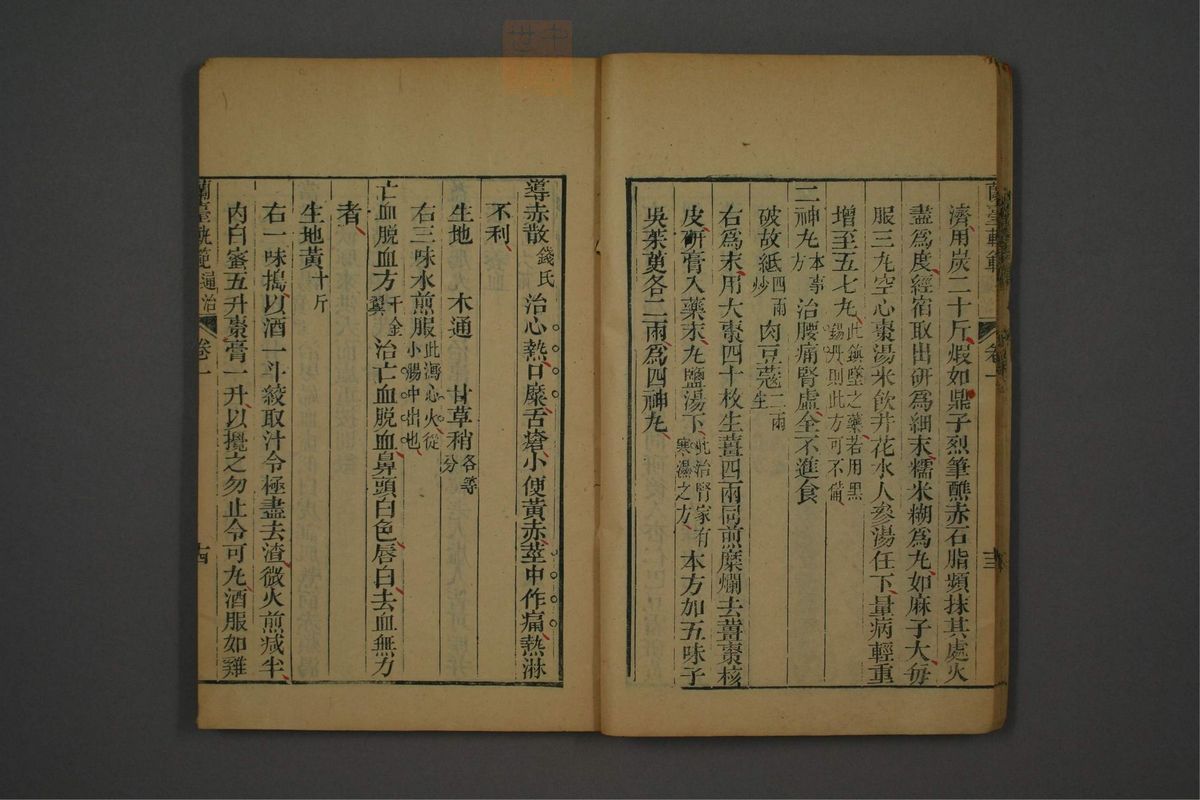 濟用炭二十斤煅如鼎子烈筆蘸赤石脂頻抹其處火
盡爲度經宿取出研爲細末糯米糊爲丸如麻子大每
服三丸空心棗湯米飲井花水人參湯任下量病輕重
增至五七丸此鎮墜之藥若用黑錫丹則此方可不備
二神丸本事方治腰痛腎虛全不進食
破故紙四兩炒 肉豆蔻二兩生
右爲末用大棗四十枚生薑四兩同煎糜爛去薑棗核
皮研膏入藥末丸鹽湯下此治腎家有寒濕之方本方加五味子
吳茱萸各二兩爲四神丸
蘭臺軌範 卷一 十三
導赤散錢氏 治心熱口糜舌瘡小便黃赤莖中作痛熱淋
不利
生地 木通 甘草稍各等分
右三味水煎服此瀉心火從小腸中出也
亡血脫血方千金翼 治亡血脫血鼻頭白色唇白去血無力
者
生地黃十斤
右一味搗以酒一斗絞取汁令極盡去渣微火煎减半
內白蜜五升棗膏一升以攪之勿止令可丸酒服如雞
蘭臺軌範 通治 卷一 十四